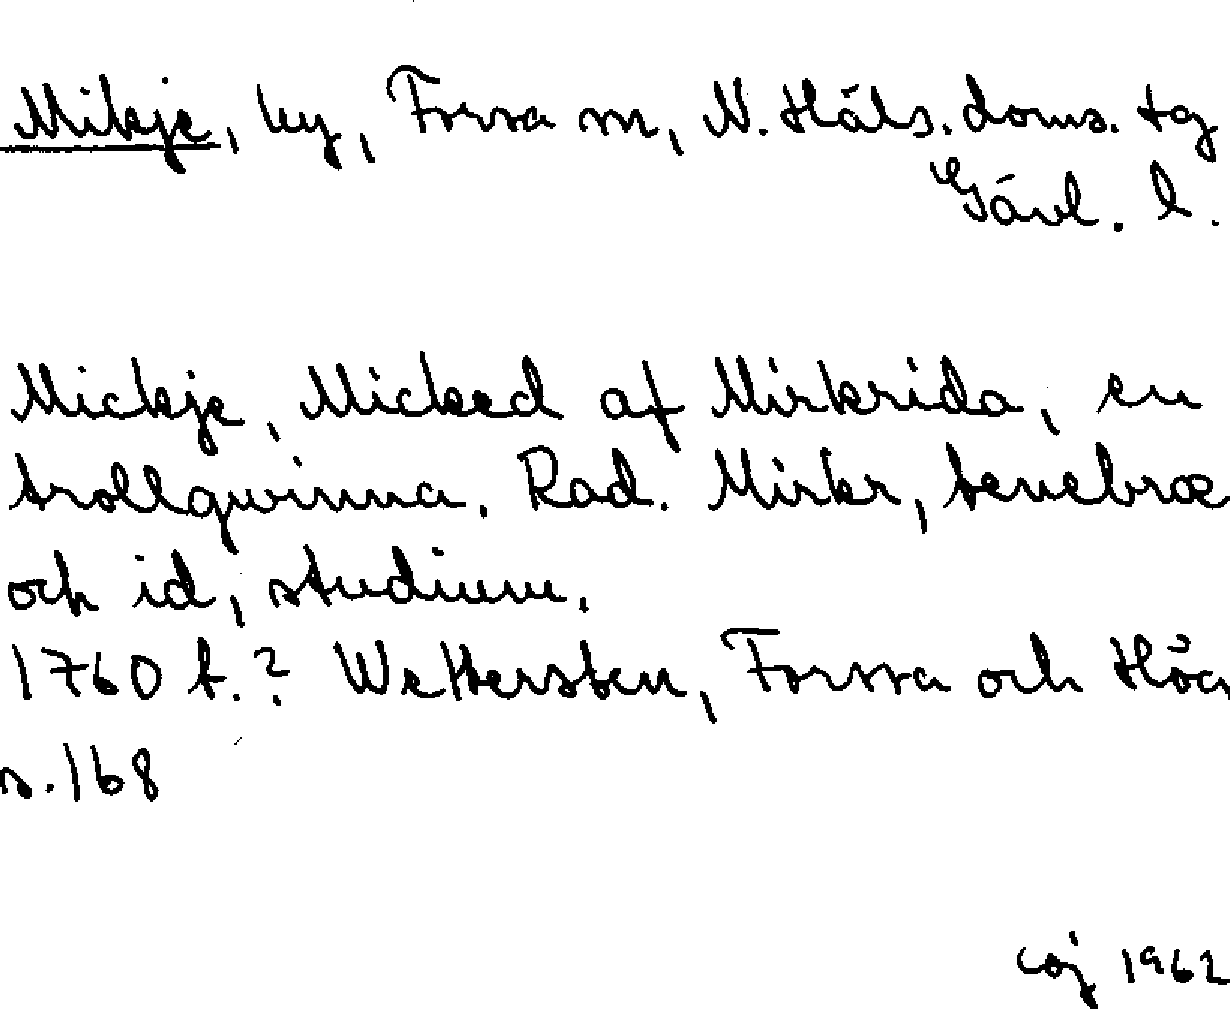 Mikje, by, Forssa sn, N. Häls. doms. tg
Gävl. l.
Mickje, Micked af Mirkrida, en
trollqwinna. Rad. Mirkr, tenebræ
och id, studium.
1760 t.? Wettersten, Forssa och Hög
s. 168
coj 1962